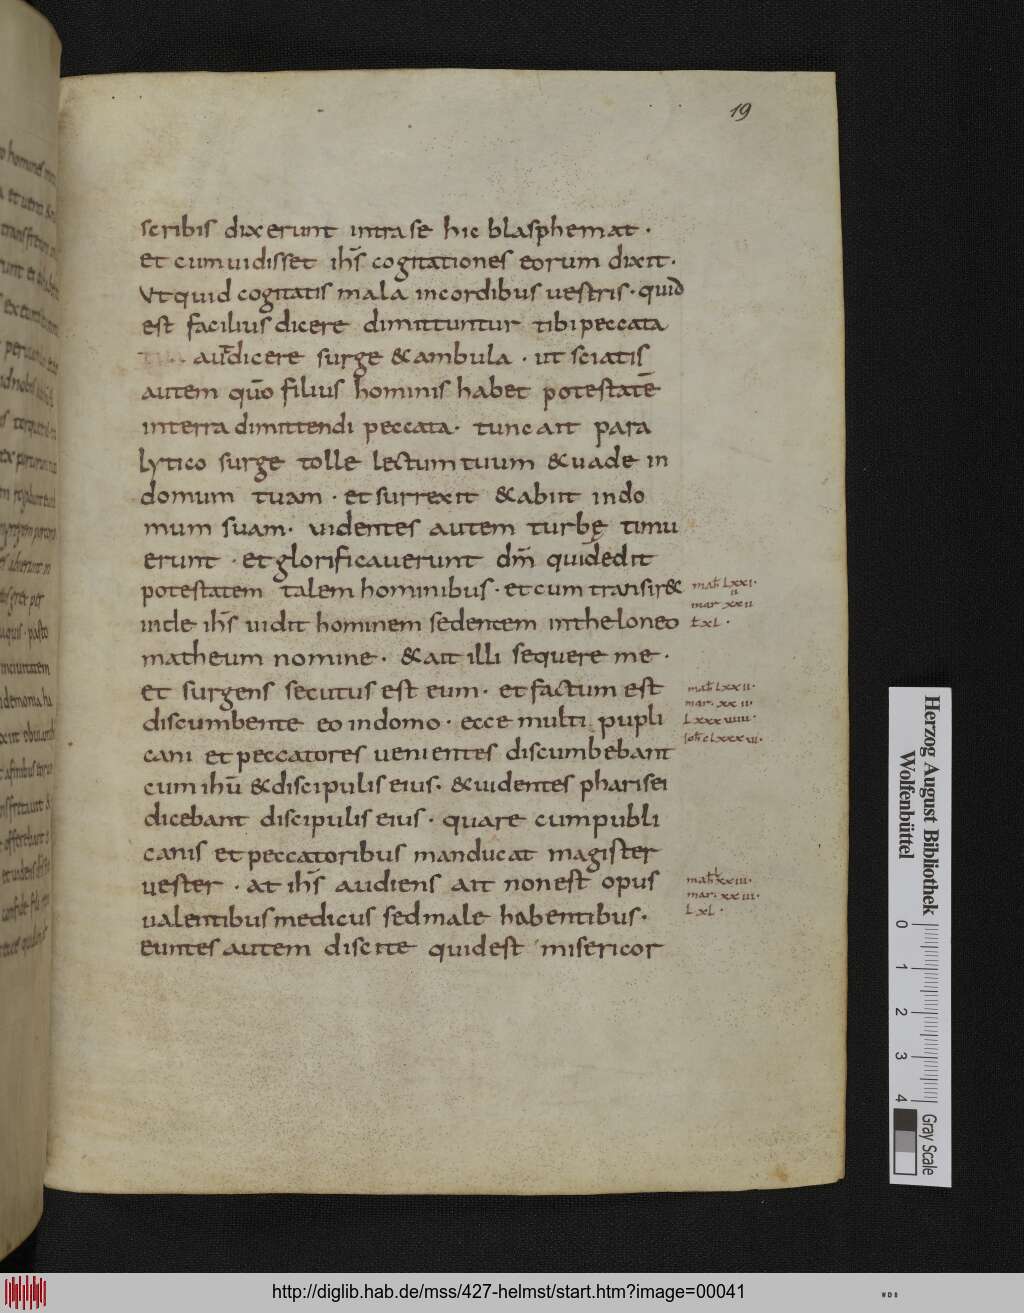 19
scribis dixerunt intra se hic blasphemat ·
et cum uidisset ihs̄ cogitationes eorum dixit ·
Vt quid cogitatis mala in cordibus uestris · quid
est facilius dicere dimittuntur tibi peccata
aut dicere surge & ambula · ut sciatis
autem quō filius hominis habet potestatē
in terra dimittendi peccata · tunc ait para
lytico surge tolle lectum tuum & uade in
domum tuam · et surrexit & abiit in do
mum suam · uidentes autem turbę timu
erunt · et glorificauerunt dm̄ qui dedit
potestatem talem hominibus · et cum transir&
inde ihs̄ uidit hominem sedentem in theloneo
matheum nomine · & ait illi sequere me ·
et surgens secutus est eum · et factum est
discumbente eo in domo · ecce multi pupli
cani et peccatores uenientes discumbebant
cum ihū & discipulis eius · & uidentes pharisei
dicebant discipulis eius · quare cum publi
canis et peccatoribus manducat magister
uester · at ihs̄ audiens ait non est opus
ualentibus medicus sed male habentibus ·
euntes autem discite quid est misericor
mat̄ Lxxi ·
mar xxii
mat̄ Lxxii ·
mar · xxii ·
mar · xxiii ·
L xL ·
Herzog August Bibliothek
Wolfenbüttel
0 1 2 3 4
Gray Scale
http://diglib.hab.de/mss/427-helmst/start.htm?image=00041